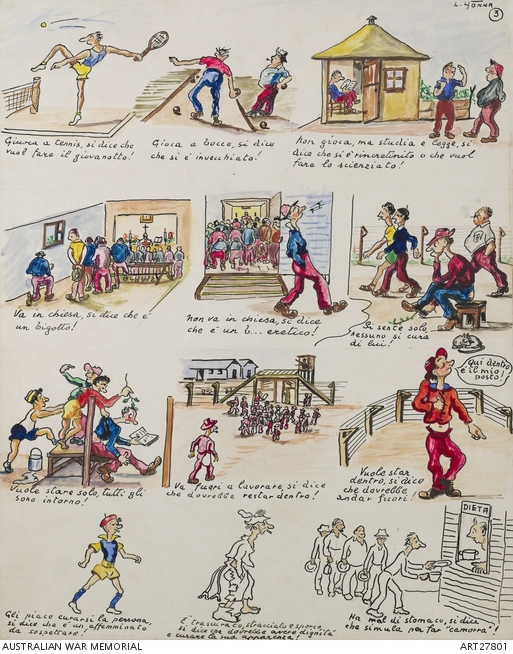 L. HONNA
3
Giuoca a tennis, si dice che
vuol fare il giovanotto!
Gioca a bocce, si dice
che si è invecchiato!
Non gioca, ma studia e legge, si
dice che si è rincretinito o che vuol
fare lo scienziato!
Va in chiesa, si dice che è
un bigotto!
Non va in chiesa, si dice
che è un b... eretico!
Si sente solo,
nessuno si cura
di lui!
Qui dentro
è il mio
posto!
Vuole stare solo, tutti gli
sono intorno!
Va fuori a lavorare, si dice
che dovrebbe restar dentro!
Vuole star
dentro, si dice
che dovrebbe
andar fuori!
DIETA
Gli piace curarsi la persona,
si dice che è un effemminato
da sospettare!
È trascurato, stracciato e sporco,
si dice che dovrebbe avere dignità
e curare la sua apparenza!
Ha mal di stomaco, si dice
che simula per far "camora"!
AUSTRALIAN WAR MEMORIAL
ART27801